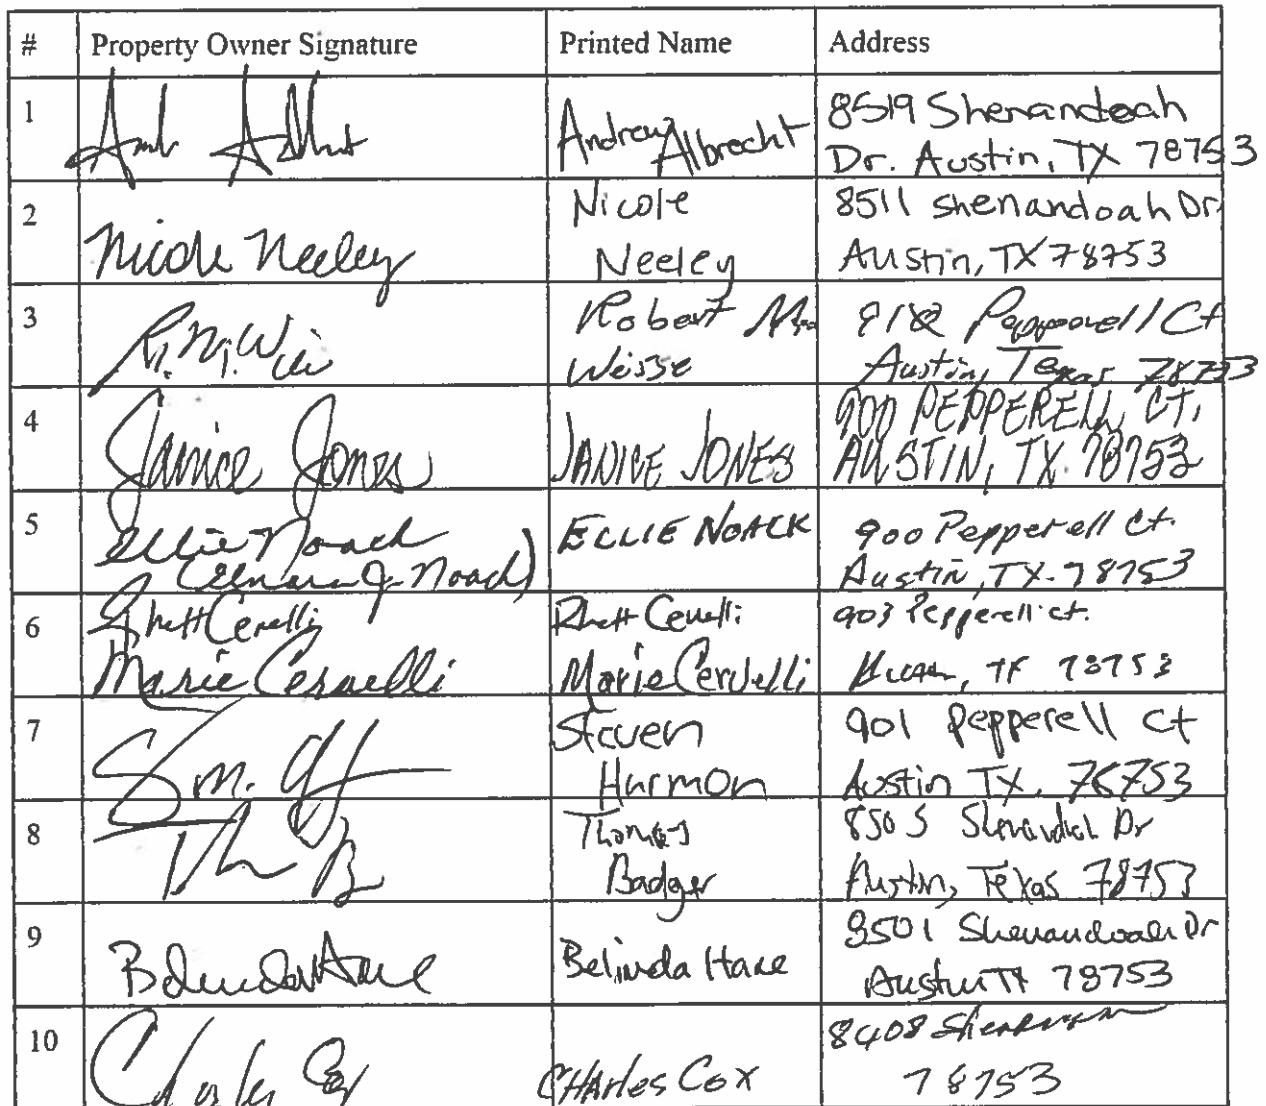 # Property Owner Signature Printed Name Address
1 Andrew Albrecht 8519 Shenandoah
Dr. Austin, TX 78753
2 Nicole Neeley Nicole Neeley 8511 Shenandoah Dr.
Austin, TX 78753
3 Robert Weisse Pepperell Ct
Austin, Texas 78753
4 Janice Jones JANICE JONES 900 PEPPERELL CT,
AUSTIN, TX 78753
5 Ellie Noack ELLIE NOACK 900 Pepperell Ct.
(Elenora J. Noack) Austin, TX. 78753
6 Rhett Cervelli Rhett Cervelli 903 Pepperell ct.
Marie Cervelli Marie Cervelli 78753
7 Steven Harmon 901 Pepperell Ct
Austin TX, 78753
8 Thomas Badger 8505 Shenandoah Dr
Austin, Texas 78753
9 Belinda Hare Belinda Hare 8501 Shenandoah Dr
Austin TX 78753
10 Charles Cox CHArles Cox 8408
78753